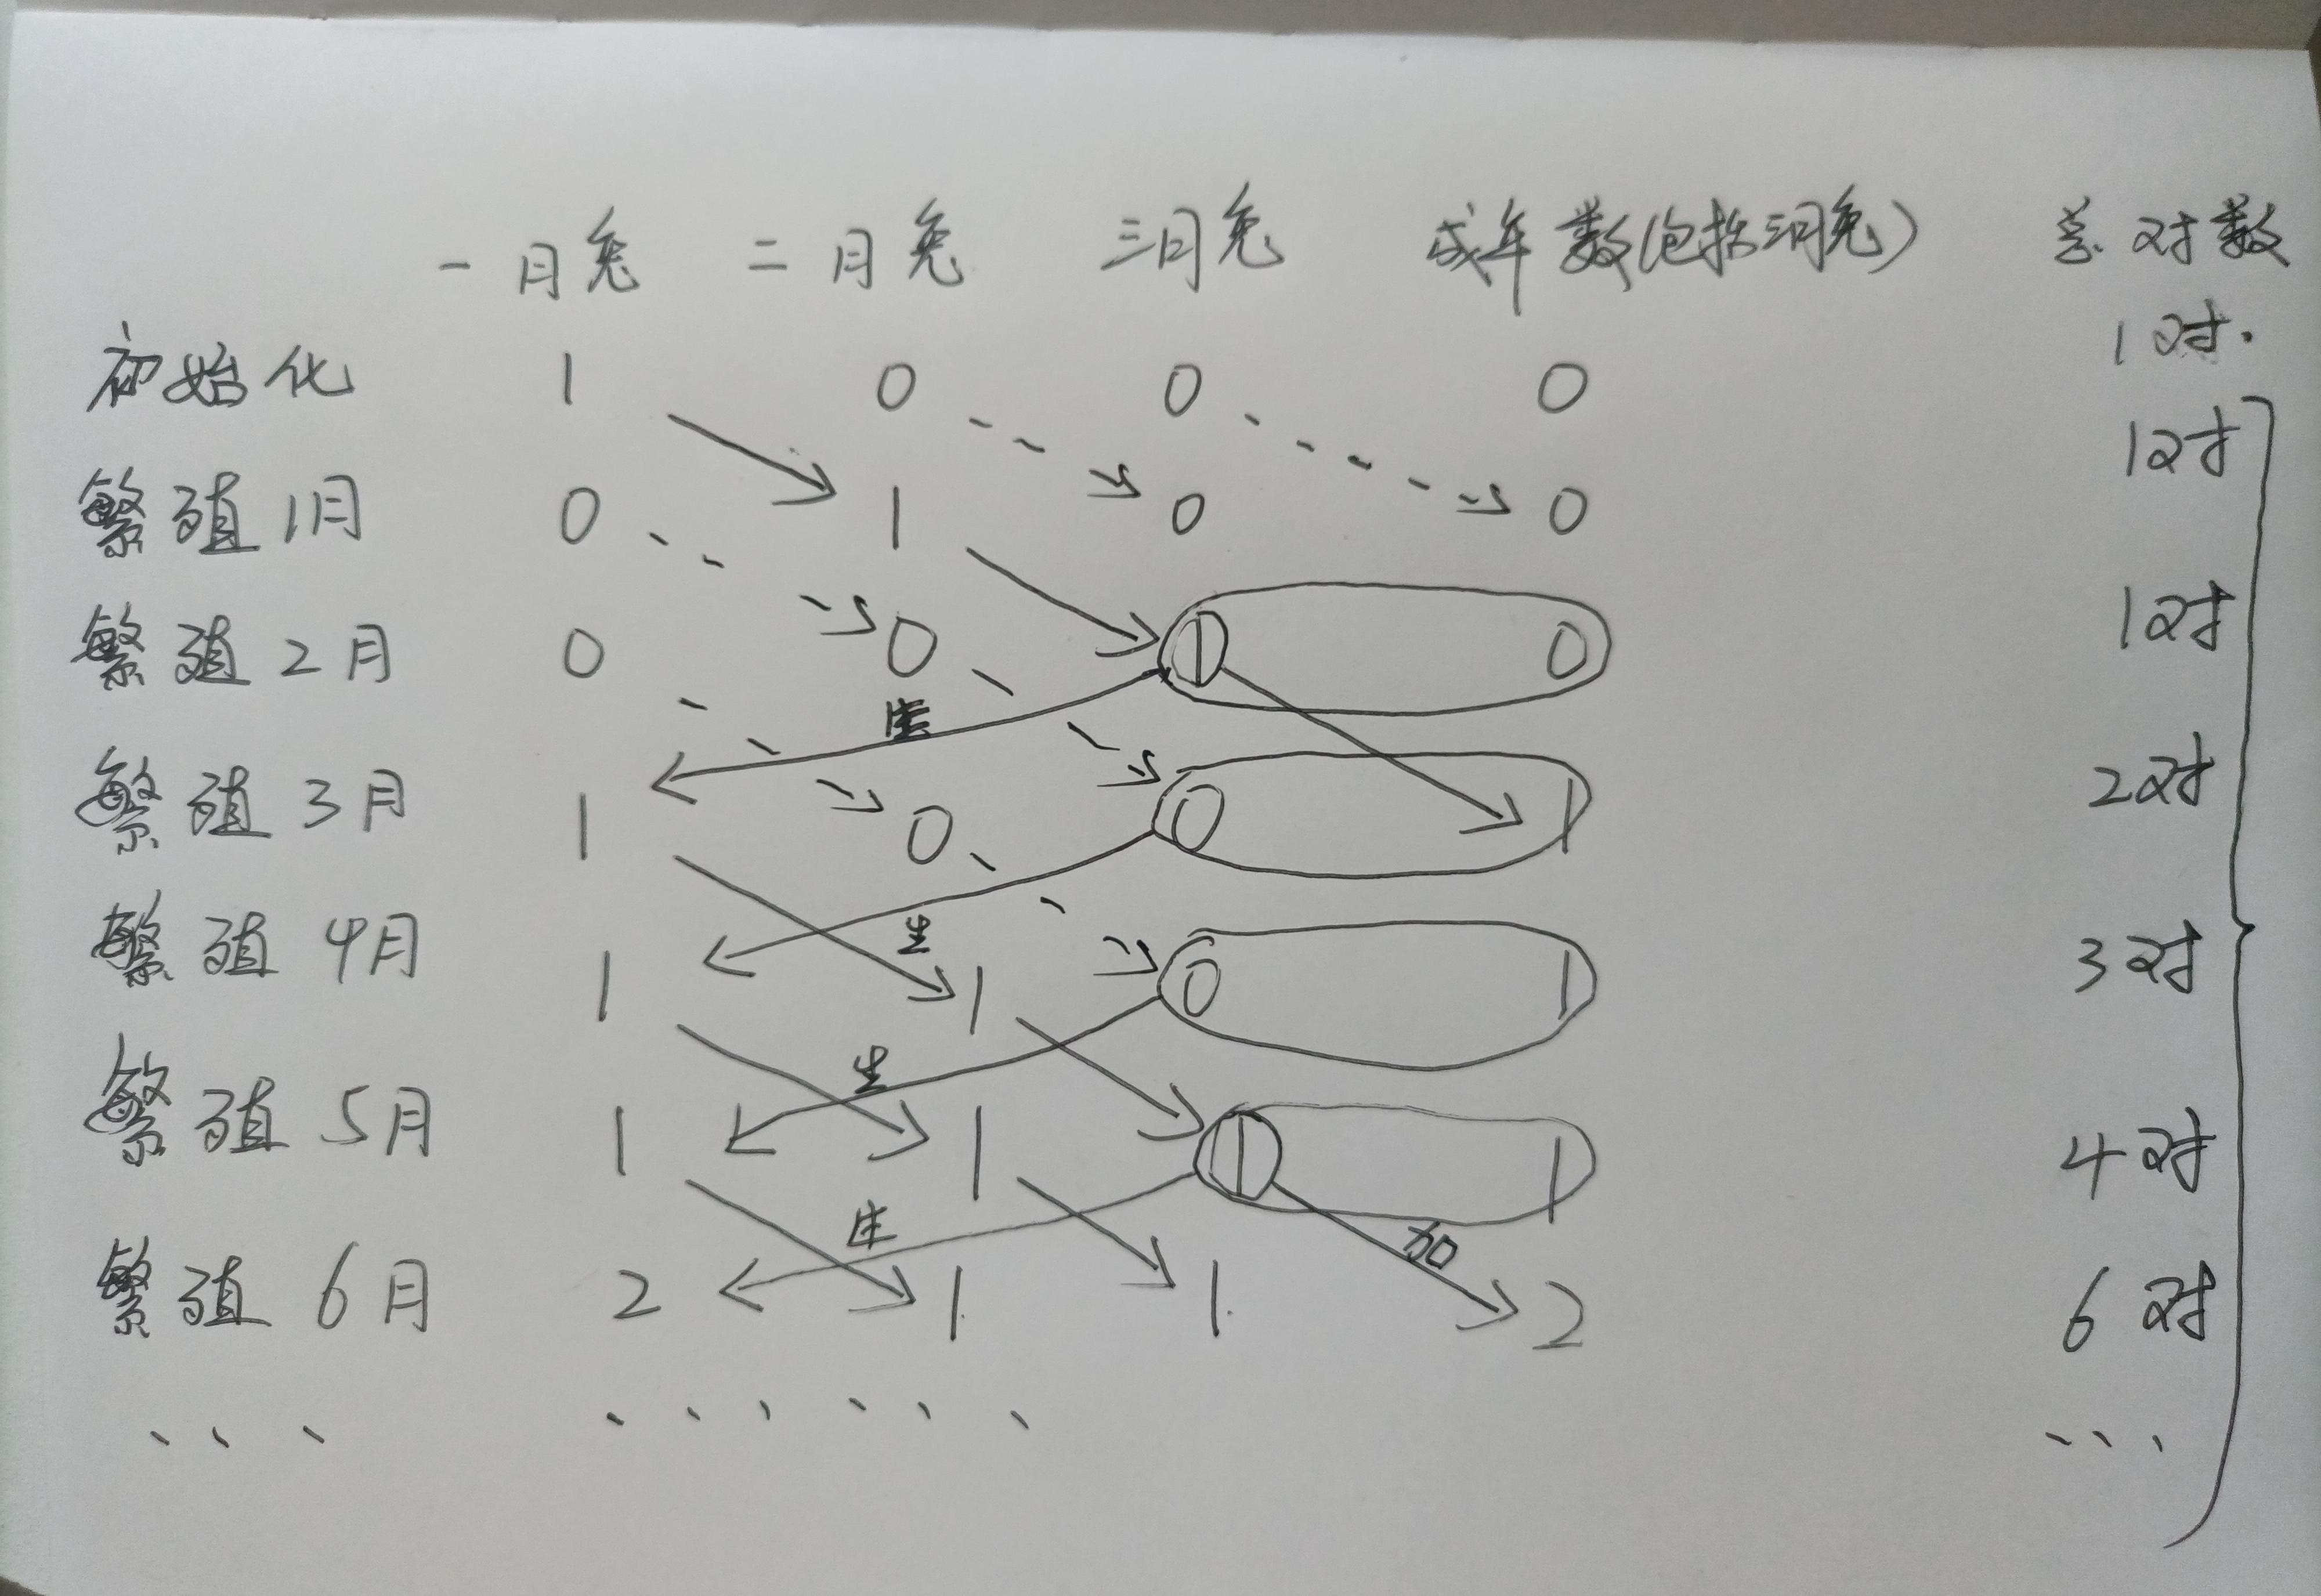 一月兔 二月兔 三月兔 成年数(包括三月兔) 总对数
初始化 1 0 0 0 1对.
繁殖1月 0 1 0 0 1对
繁殖2月 0 0 1 0 1对
生
繁殖3月 1 0 0 1 2对
生
繁殖4月 1 1 0 1 3对
生
繁殖5月 1 1 1 1 4对
生 加
繁殖6月 2 1 1 2 6对
... ...... ...